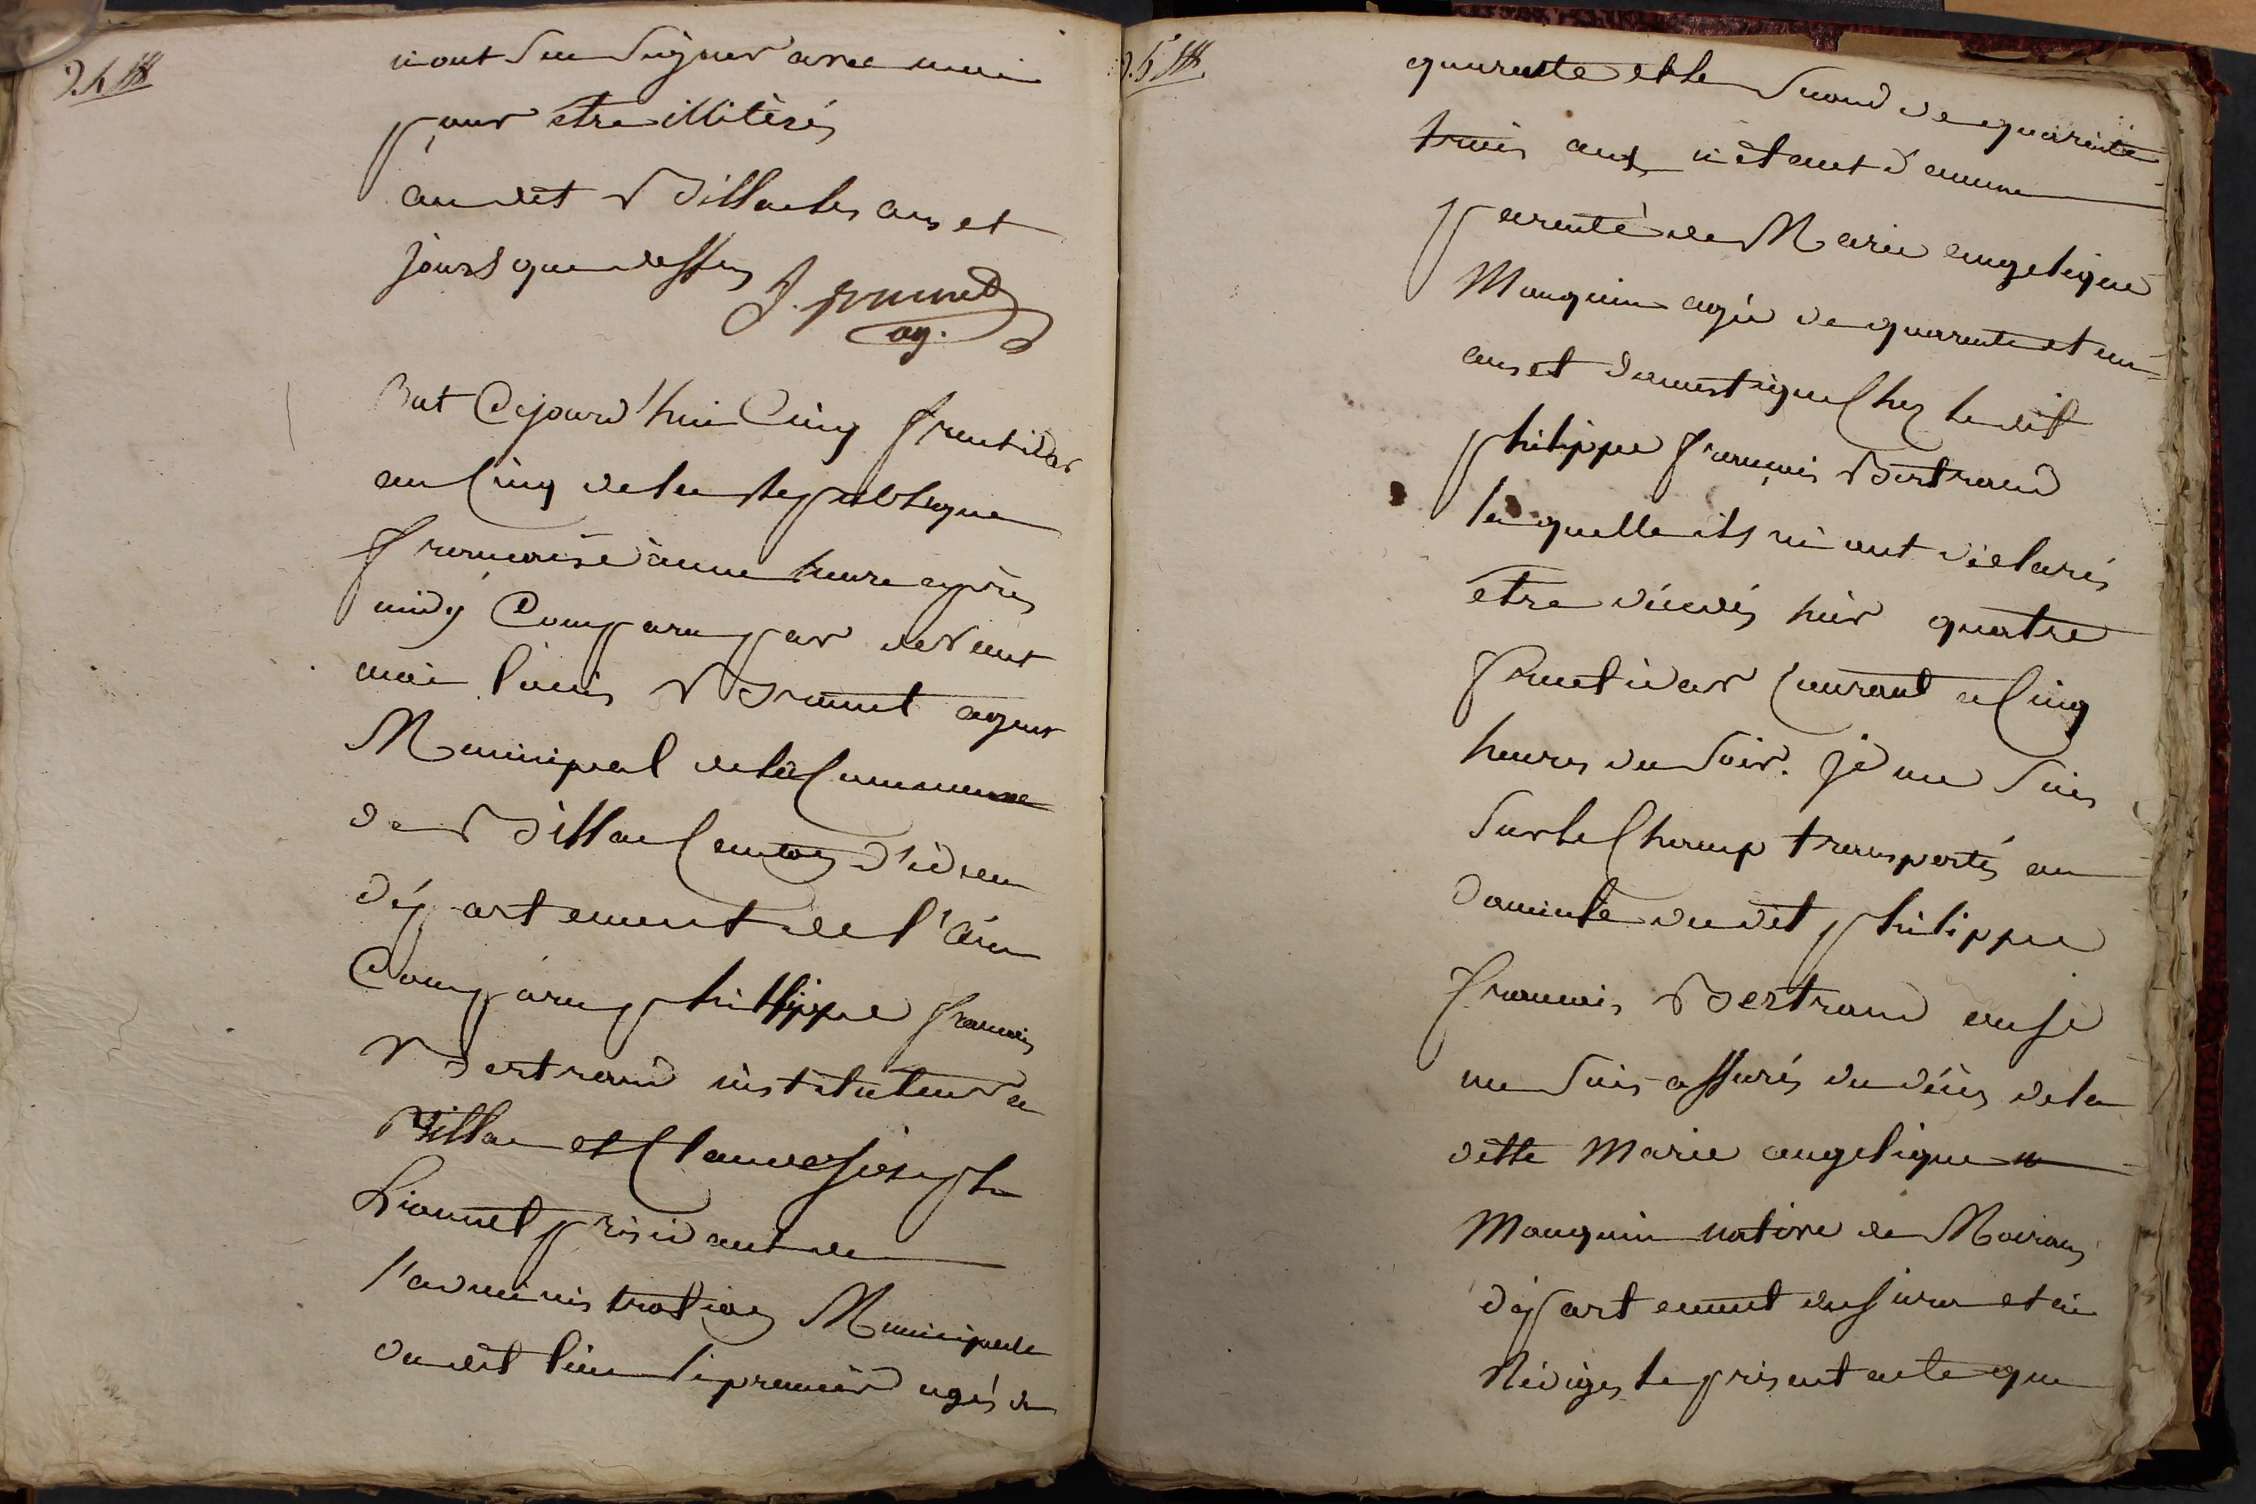 n'ont Su Signer avec moi
pour être illiterés
au dit Billac les ans et
jours que dessus J. Brunet
ag.
But Cejourd'hui Cinq fructidor
an Cinq de la Republique
francaise à une heure après
midy Comparu par devant
moi Louis Brunet agent
Municipal de la Commune
de Billac Canton d'
département de l'ain
Comparu phillippe francois
Bertrand instituteur a
Billac et Claude Joseph
président de
l'administration Municipale
du dit lieu le premier agés de
quarente et le Second de quarente
trois ans n'etant d'aucune
parenté de Marie angelique
Mauguin agée de quarente et un
ans et domestique Chez le dit
philippe françois Bertrand
laquelle ils m'ont déclarés
être décédés hier quatre
fructidor Courant a Cinq
heures du Soir. je me Suis
Sur le Champ transportés au
domicile du dit philippe
francois Bertrand ou je
me Suis assurés du décés de la
ditte Marie angelique
Mauguin native de Moirans
département du jura et ai
Rédiges le présent acte que